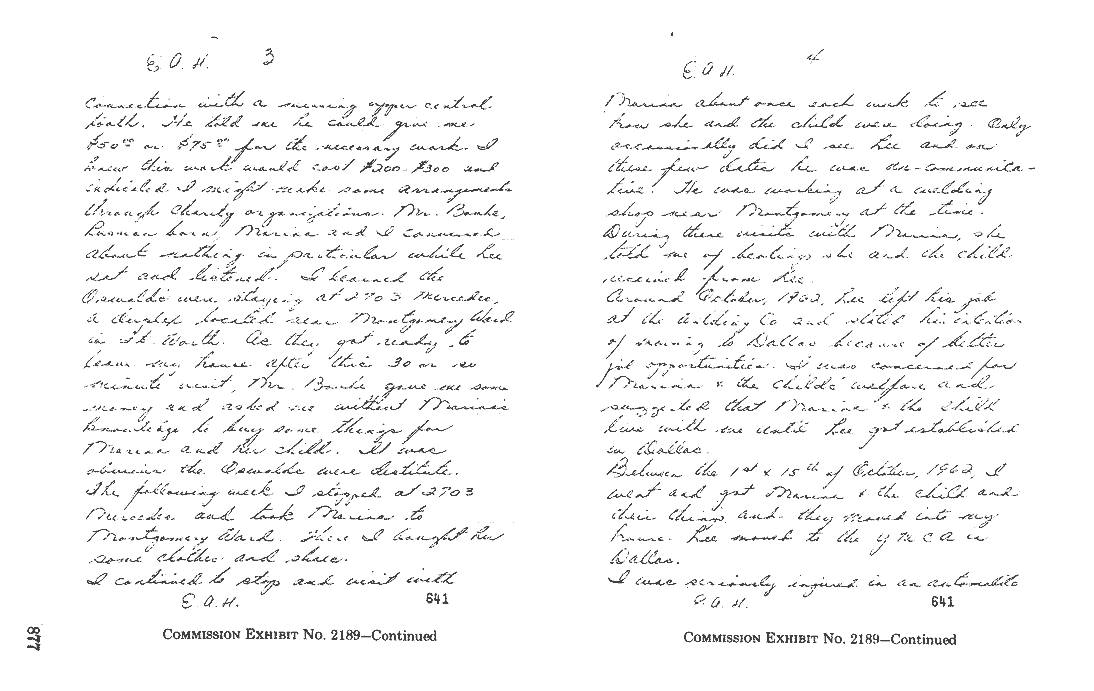 E. A. H. 3
Connection with a running upper central
tooth. He told me he could give me
$50⁰⁰ or $75⁰⁰ for the necessary work. I
knew this work would cost $200-$300 and
indicated I might make some arrangements
through Charity organizations. Mr. Bouhe,
Russian born, Marina and I conversed
about nothing in particular while Lee
sat and listened. I learned the
Oswalds were staying at 2703 Mercedes,
a duplex located near Montgomery Ward
in Ft. Worth. As they got ready to
leave my house after this 30 or so
minute visit, Mr. Bouhe gave me some
money and asked me without Marina's
knowledge to buy some things for
Marina and her child. It was
obvious the Oswalds were destitute.
The following week I stopped at 2703
Mercedes and took Marina to
Montgomery Ward. There I bought her
some clothes and shoes.
I continued to stop and visit with
E. A. H. 641
COMMISSION EXHIBIT No. 2189—Continued
877
E. A. H. 4
Marina about once each week to see
how she and the child were doing. Only
occassionally did I see Lee and on
these few dates he was un-communica-
tive. He was working at a welding
shop near Montgomery at the time.
During these visits with Marina, she
told me of beatings she and the child
received from Lee.
Around October, 1962, Lee left his job
at the welding Co and stated his intention
of moving to Dallas because of better
job opportunities. I was concerned for
Marina & the child's welfare and
suggested that Marina & the child
live with me until Lee got established
in Dallas.
Between the 1st & 15th of October, 1962, I
went and got Marina & the child and
their things and they moved into my
house. Lee moved to the YMCA in
Dallas.
I was seriously injured in an automobile
E. A. H. 641
COMMISSION EXHIBIT No. 2189—Continued